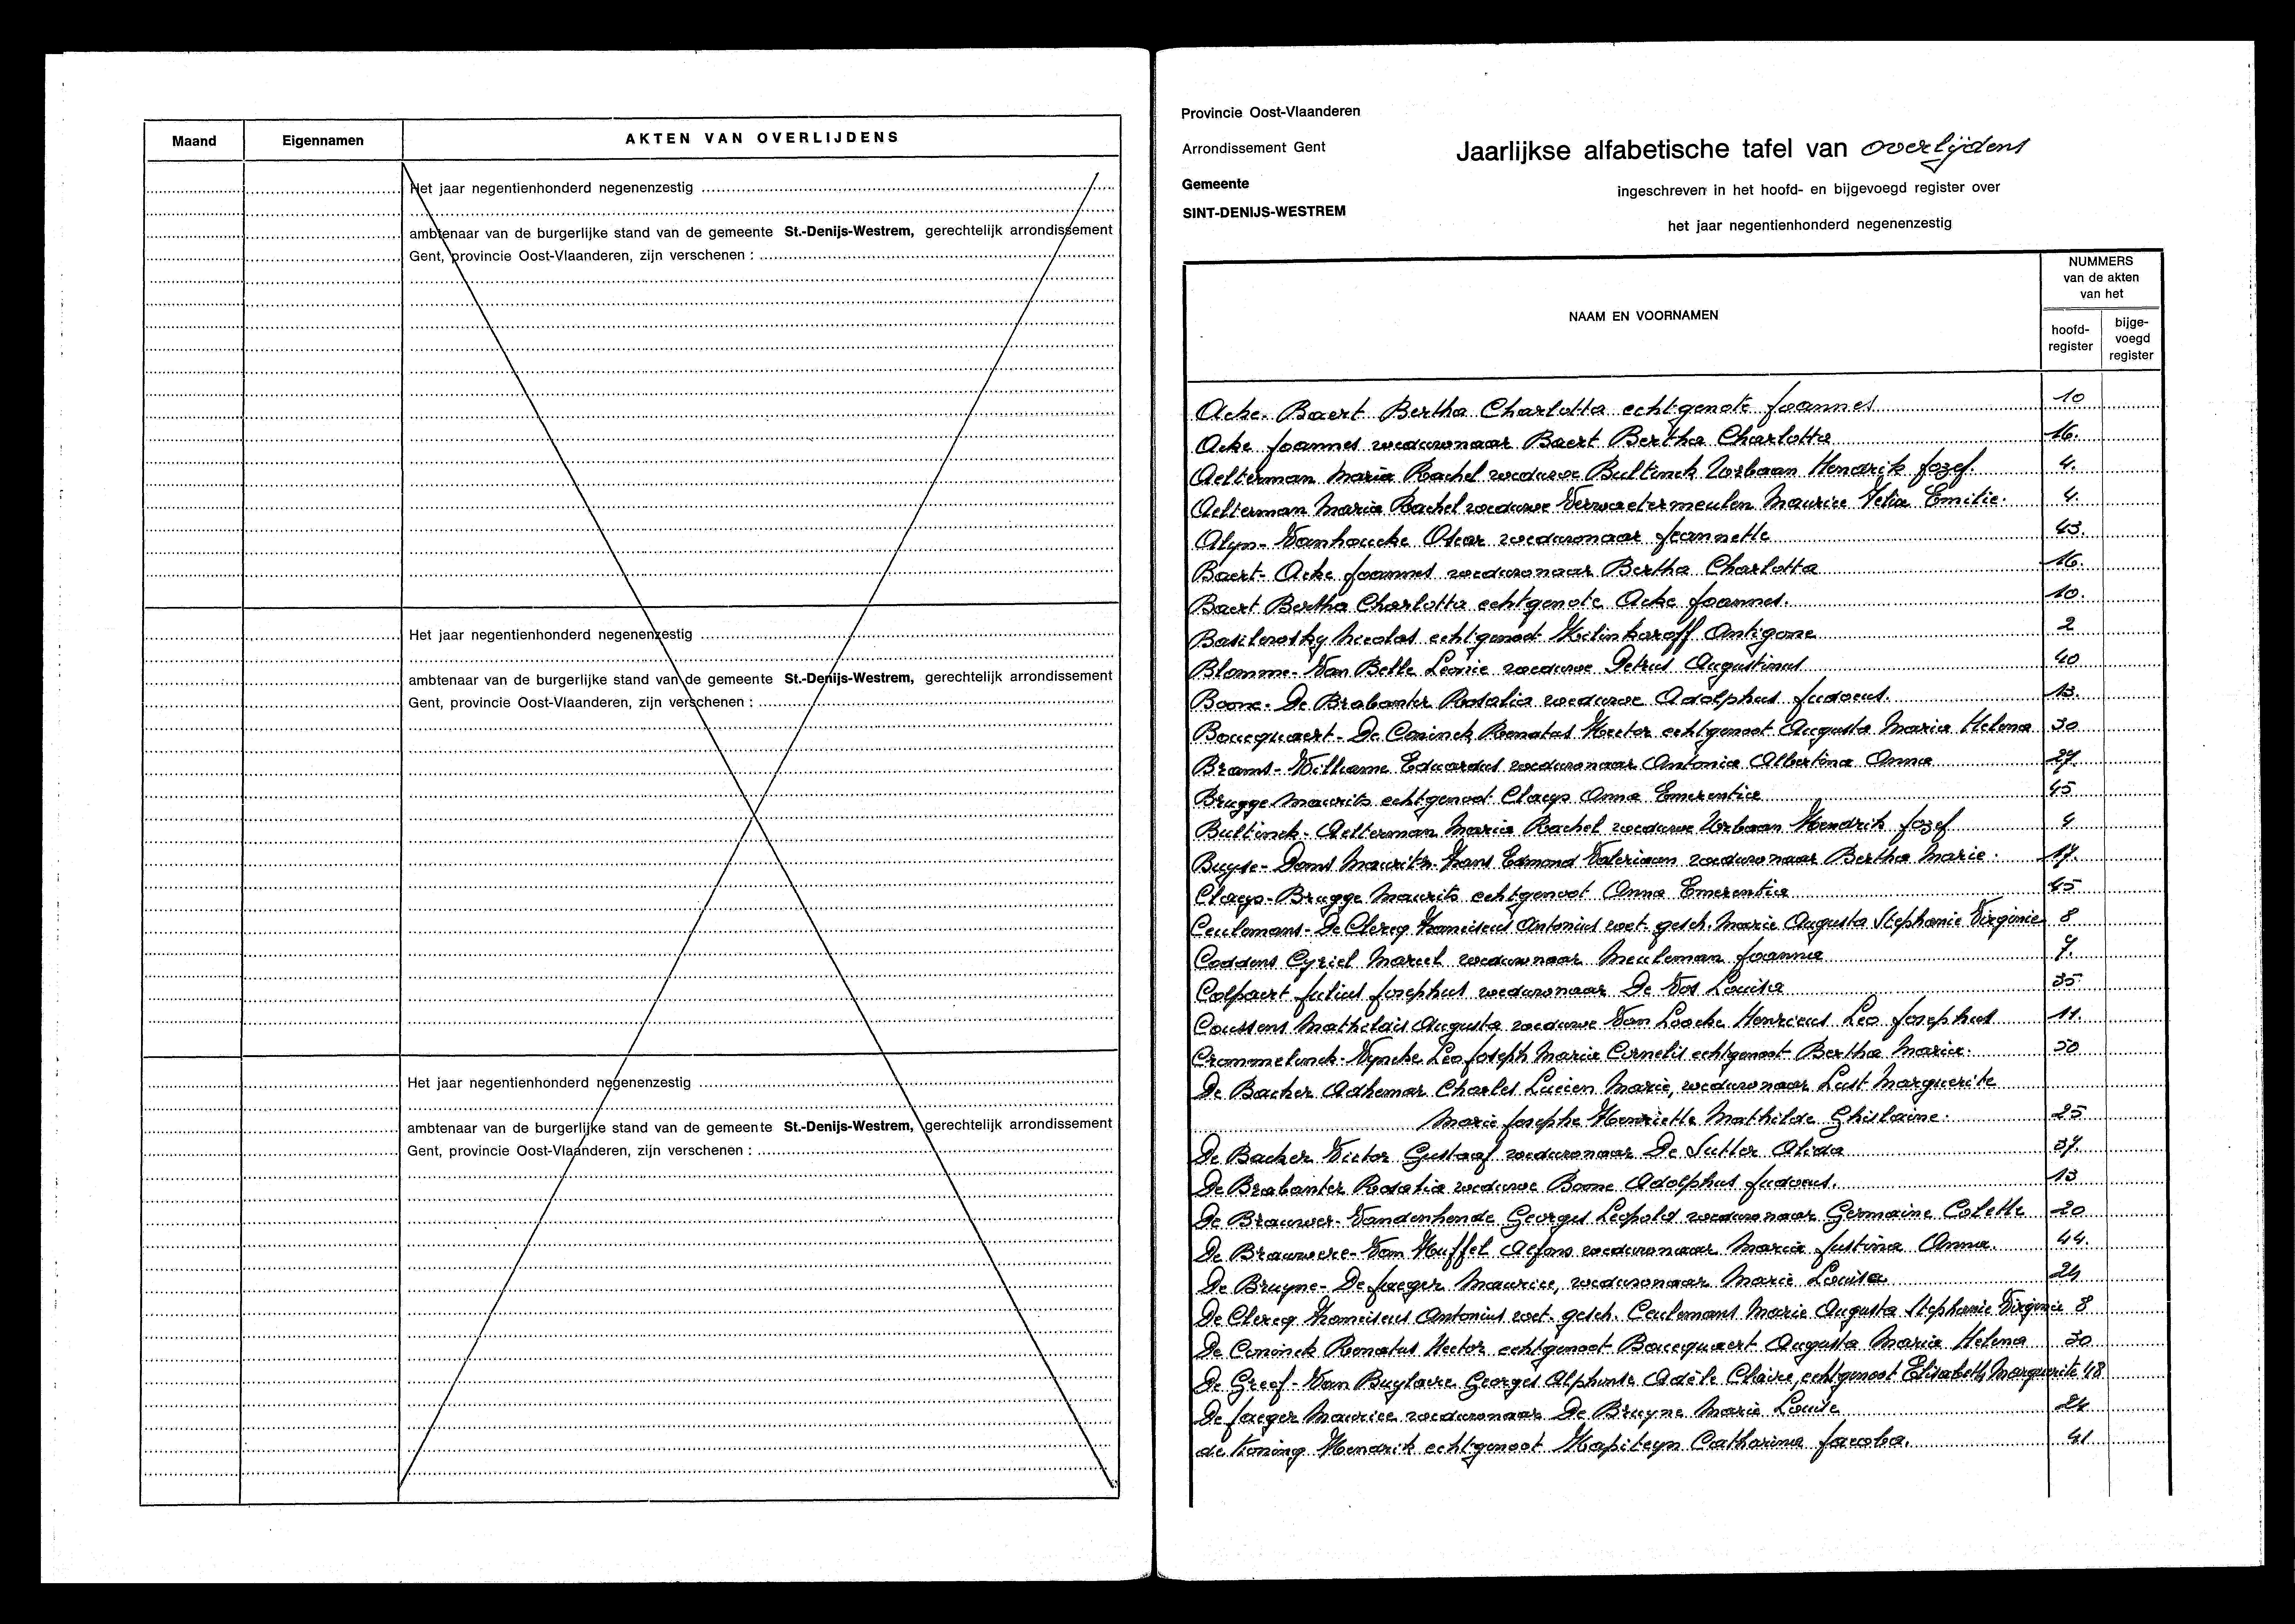 Maand
Eigennamen
AKTEN VAN OVERLIJDENS
Het jaar negentienhonderd negenenzestig
ambtenaar van de burgerlijke stand van de gemeente St.-Denijs-Westrem, gerechtelijk arrondissement
Gent, provincie Oost-Vlaanderen, zijn verschenen :
Het jaar negentienhonderd negenenzestig
ambtenaar van de burgerlijke stand van de gemeente St.-Denijs-Westrem, gerechtelijk arrondissement
Gent, provincie Oost-Vlaanderen, zijn verschenen :
Het jaar negentienhonderd negenenzestig
ambtenaar van de burgerlijke stand van de gemeente St.-Denijs-Westrem, gerechtelijk arrondissement
Gent, provincie Oost-Vlaanderen, zijn verschenen :
Provincie Oost-Vlaanderen
Arrondissement Gent
Gemeente
SINT-DENIJS-WESTREM
Jaarlijkse alfabetische tafel van overlijdens
ingeschreven in het hoofd- en bijgevoegd register over
het jaar negentienhonderd negenenzestig
NAAM EN VOORNAMEN
NUMMERS
van de akten
van het
hoofd-
register
bijge-
voegd
register
Acke-Baert Bertha Charlotta echtgenote Joannes 10
Acke Joannes weduwnaar Baert Bertha Charlotta 16.
Aelterman Maria Rachel weduwe Bultinck Urbaan Hendrik Jozef. 4.
Aelterman Maria Rachel weduwe Verwaetermeulen Maurice Felix Emilie. 4.
Alyn-Vanhoucke Oscar weduwnaar Jeannette 43.
Baert-Acke Joannes weduwnaar Bertha Charlotta 16.
Baert Bertha Charlotta echtgenote Acke Joannes. 10.
Basilewsky Nicolas echtgenoot Antigone 2
Blomme-Van Belle Leonie weduwe Petrus Augustinus 40
Boone-De Brabanter Rosalia weduwe Adolphus Judocus. 13.
Boucquaert-De Coninck Renatus Hector echtgenoot Augusta Maria Helena 30
Brams-Willeme Eduardus weduwnaar Antonia Albertina Anna 27.
Brugge Maurits echtgenoot Claeys Anna Emerentia 45
Bultinck-Aelterman Maria Rachel weduwe Urbaan Hendrik Jozef 4
Buyse-Doms Maurits Frans Edmond Valeriaan weduwnaar Bertha Marie. 17.
Claeys-Brugge Maurits echtgenoot Anna Emerentia 45
Ceulemans-De Clercq Franciscus Antonius wet. gesch. Marie Augusta Stephanie Virginie 8
Coddens Cyriel Marcel weduwnaar Meuleman Joanna 7.
Colpaert Julius Josephus weduwnaar De Vos Louisa 35
Coussens Mathildis Augusta weduwe Van Loocke Henricus Leo Josephus 11.
Crommelinck-Vyncke Leo Joseph Maria Cornelis echtgenoot Bertha Maria. 50
De Backer Adhemar Charles Lucien Marie, weduwnaar Last Marguerite
Marie Josephe Henriette Mathilde Ghislaine. 25
De Backer Victor Gustaaf weduwnaar De Sutter Alida 37.
De Brabanter Rosalia weduwe Boone Adolphus Judocus. 13
De Brauwer-Vandenhende Georges Leopold weduwnaar Germaine Colette 20
De Brauwere-Van Huffel Alfons weduwnaar Maria Justina Anna. 44.
De Bruyne-De Jaeger Maurice, weduwnaar Marie Louise 24
De Clercq Franciscus Antonius wet. gesch. Ceulemans Marie Augusta Stephanie Virginie 8
De Coninck Renatus Hector echtgenoot Boucquaert Augusta Maria Helena 30
De Greef-Van Buylaere Georges Alphonse Adèle Claire, echtgenoot Elisabeth Marguerite 48
De Jaeger Maurice weduwnaar De Bruyne Marie Louise 24
de Koning Hendrik echtgenoot Kapiteyn Catharina Jacoba. 41